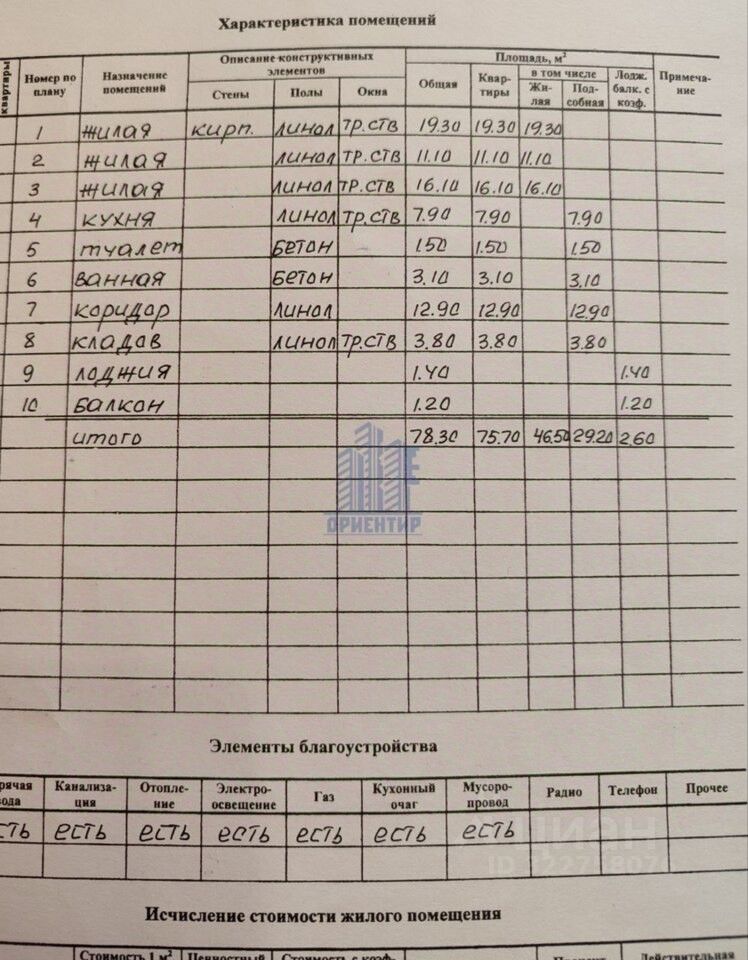 Характеристика помещений
квартиры | Номер по плану | Назначение помещений | Описание конструктивных элементов | Площадь, м² | Примеча-ние
Стены | Полы | Окна | Общая | Квар-тиры | в том числе | Лодж. балк. с коэф.
Жи-лая | Под-собная
1 | жилая | кирп. | линол | тр.ств | 19.30 | 19.30 | 19.30
2 | жилая | линол | тр.ств | 11.10 | 11.10 | 11.10
3 | жилая | линол | тр.ств | 16.10 | 16.10 | 16.10
4 | кухня | линол | тр.ств | 7.90 | 7.90 | 7.90
5 | туалет | бетон | – | 1.50 | 1.50 | 1.50
6 | ванная | бетон | 3.10 | 3.10 | 3.10
7 | коридор | линол | 12.90 | 12.90 | 12.90
8 | кладов | линол | тр.ств | 3.80 | 3.80 | 3.80
9 | лоджия | 1.40 | 1.40
10 | балкон | 1.20 | 1.20
итого | 78.30 | 75.70 | 46.50 | 29.20 | 2.60
ОРИЕНТИР
Элементы благоустройства
рячая ода | Канализа-ция | Отопле-ние | Электро-освещение | Газ | Кухонный очаг | Мусоро-провод | Радио | Телефон | Прочее
сть | есть | есть | есть | есть | есть | есть
циан
Исчисление стоимости жилого помещения
Стоимость 1 м² | Ценностный | Стоимость с коэф. | Процент | Действительная